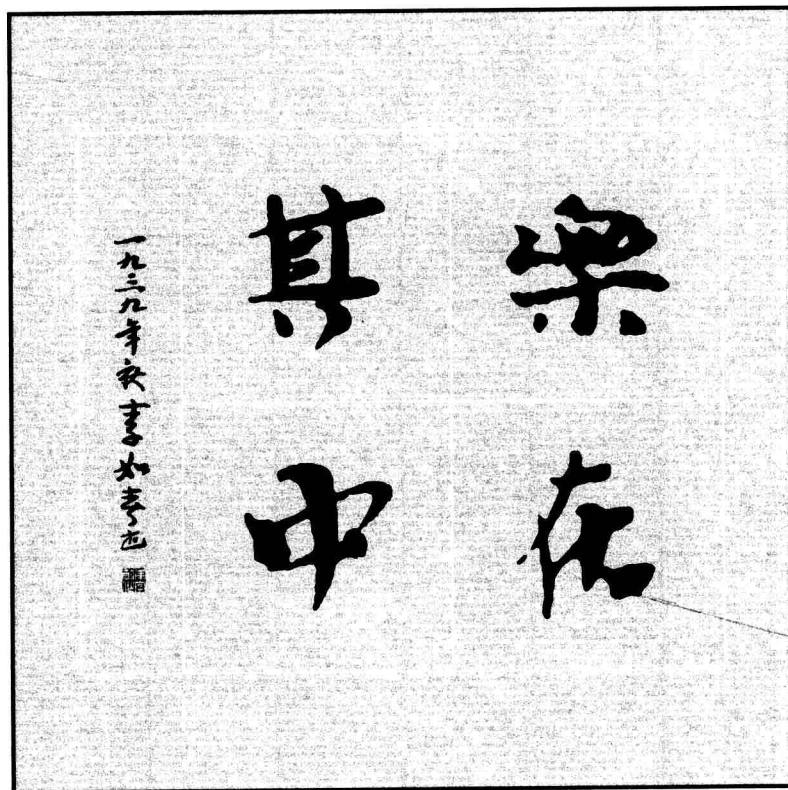 樂在
其中
一九三九年秋李如春书